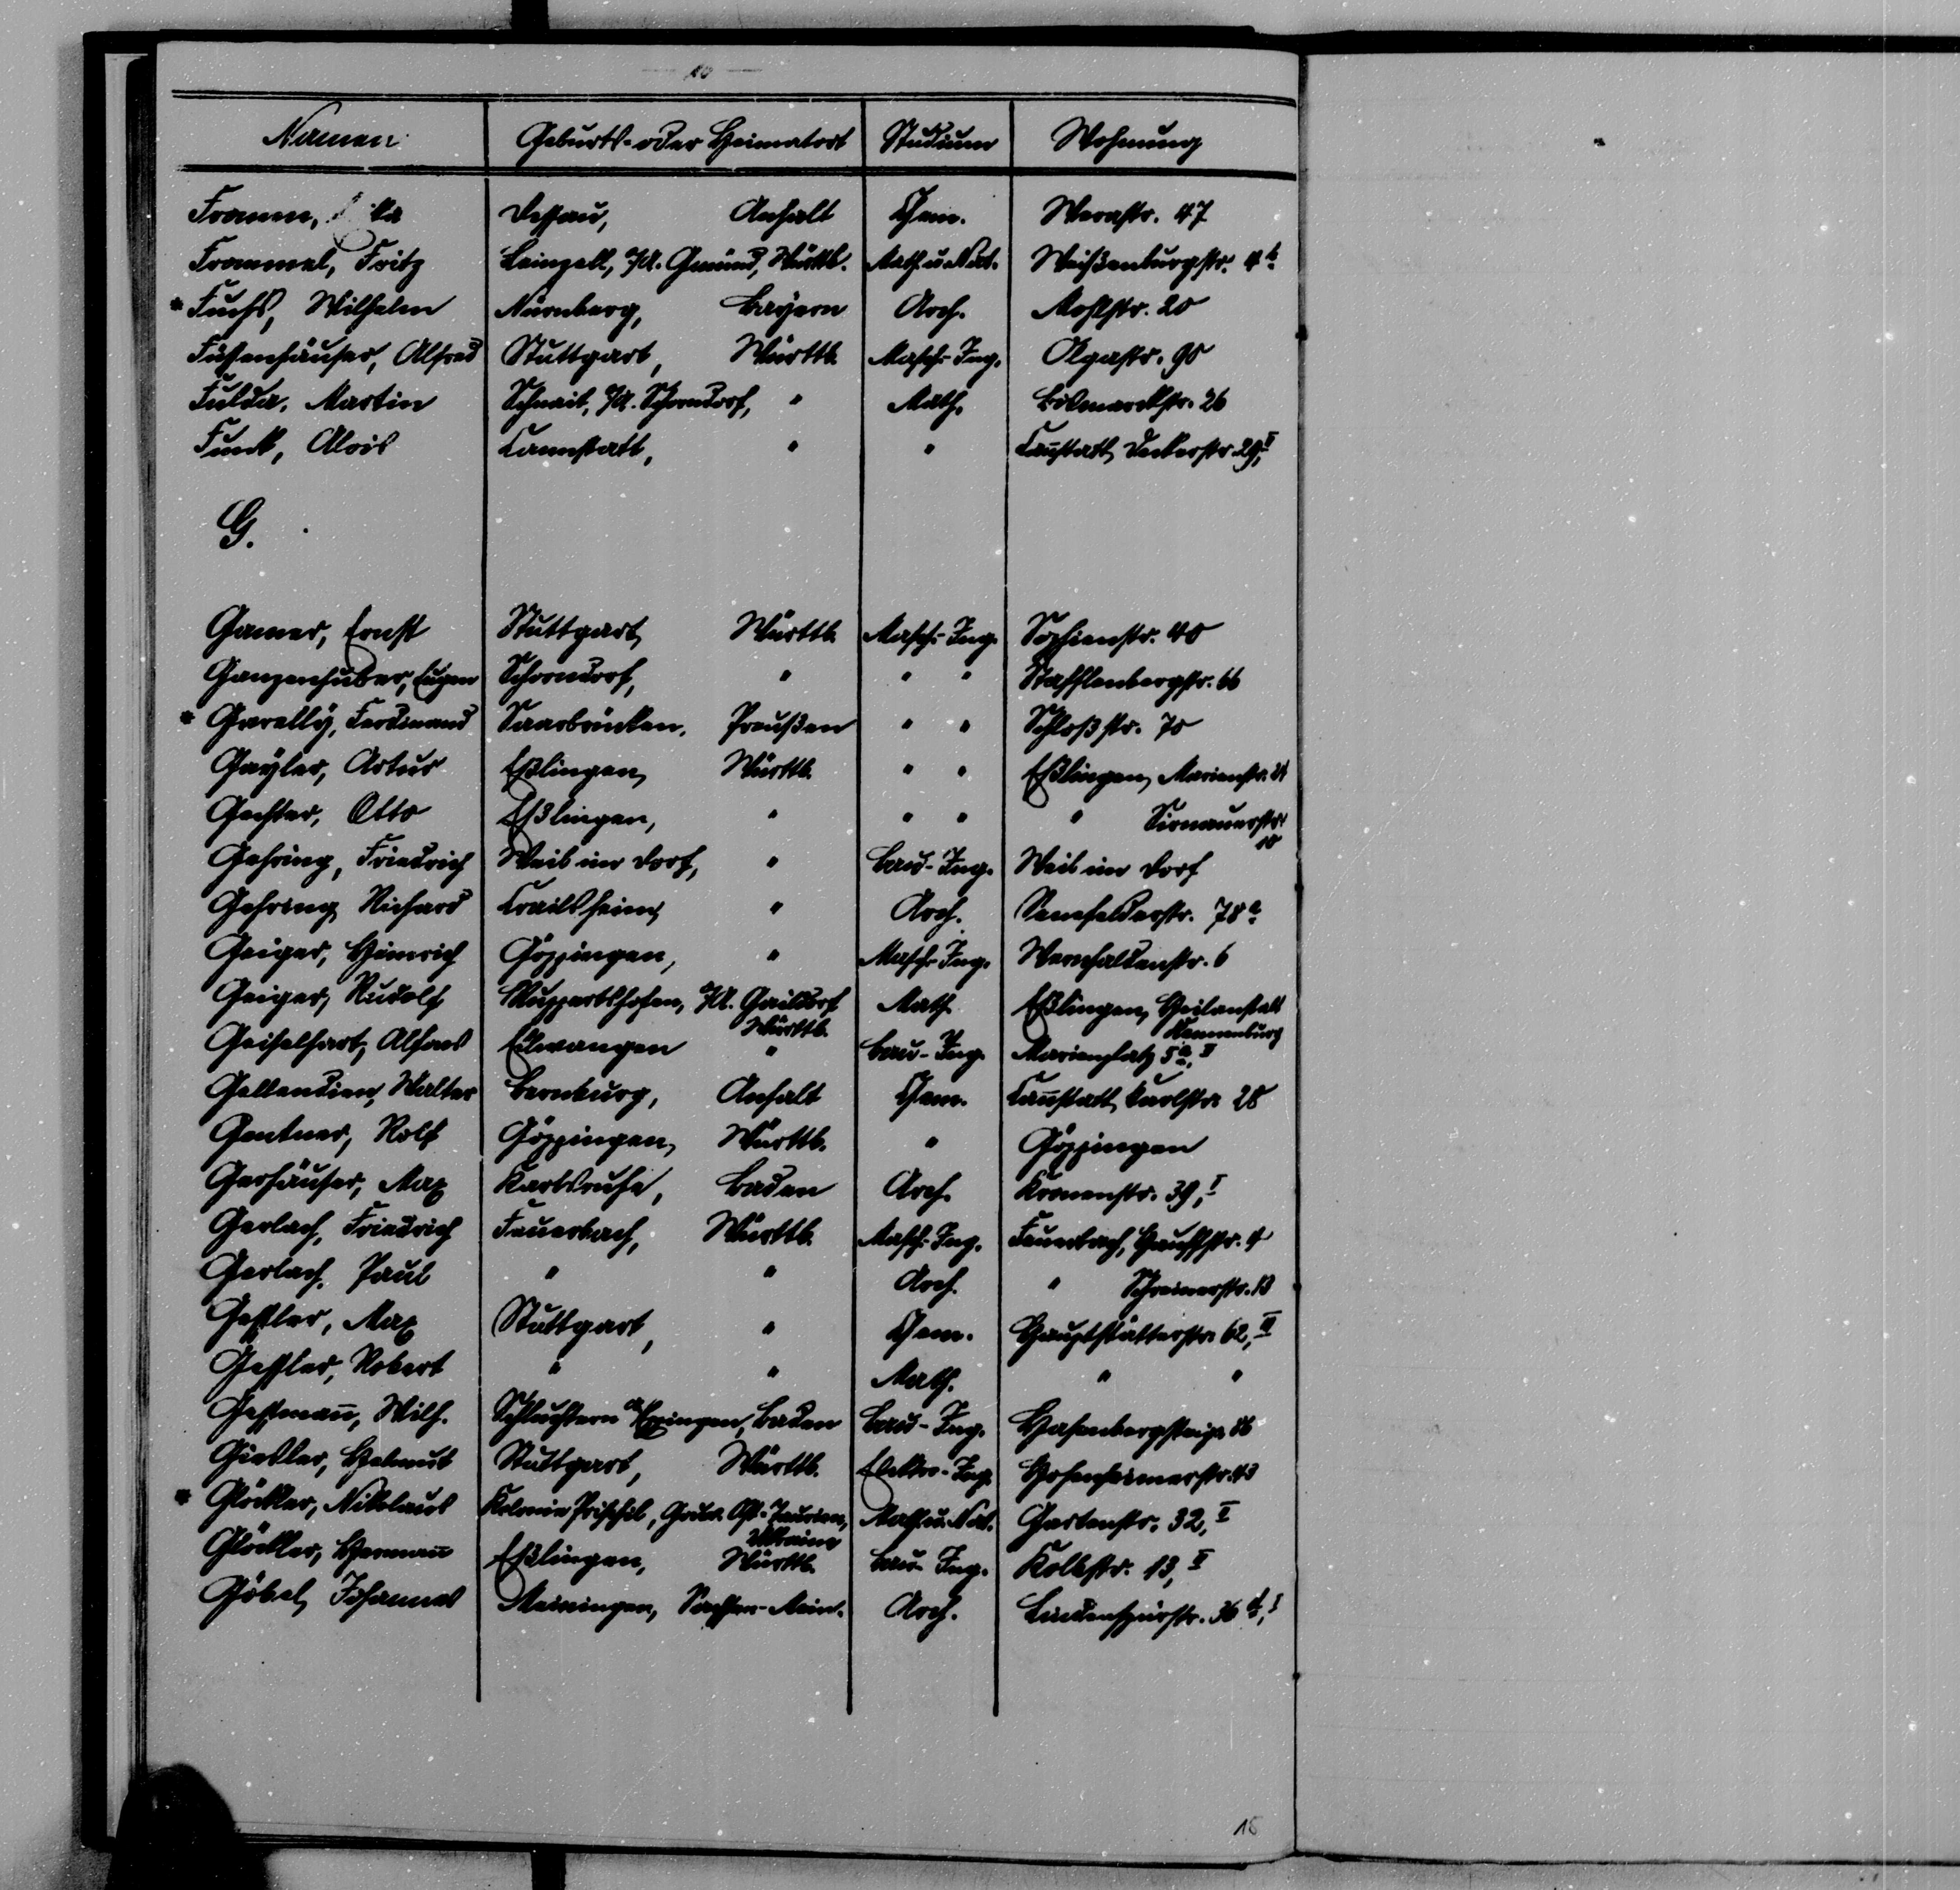 — 10 —
Namen Geburts- oder Heimatort Studium Wohnung
Fromm, Dessau, Anhalt Chem. Werastr. 47
Frommel, Fritz Leinzell, O/A. Gmünd, Württb. Math. u. Nat. Weißenburgstr. 4 b
* Fuchs, Wilhelm Nürnberg, Bayern Arch. Mohlstr. 20
Füssenhäuser, Alfred Stuttgart, Württb. Masch.-Ing. Olgastr. 90
Fulda, Martin Schnait, O/A. Schorndorf, " Math. Bismarckstr. 26
Funk, Alois Cannstatt, " " Cañstatt, Deckerstr. 29, II
G.
Gamer, Ernst Stuttgart, Württb. Masch.-Ing. Sophienstr. 40
Ganzenhuber, Eugen Schorndorf, " " " Stafflenbergstr. 66
* Garelly, Ferdinand Saarbrücken, Preußen " " Schloßstr. 70
Gayler, Artur Eßlingen, Württb. " " Eßlingen, Marienstr.
Gechter, Otto Eßlingen, " " " " Sirnauerstr.
10
Gehring, Friedrich Weil im Dorf, " Bau-Ing. Weil im Dorf
Gehring, Richard Crailsheim, " Arch. Senefelderstr. 78 a
Geiger, Heinrich Göppingen, " Masch.-Ing. Wernhaldenstr. 6
Geiger, Rudolf Ruppertshofen, O/A. Gaildorf Math. Eßlingen, Heilanstalt
Württb. Kennenburg
Geiselhart, Alfons Ellwangen " Bau-Ing. Marienplatz 5 a, II
Gellendien, Walter Bernburg, Anhalt Chem. Cañstatt, Karlstr. 28
Gentner, Rolf Göppingen, Württb. " Göppingen
Gerhäuser, Max Karlsruhe, Baden Arch. Kronenstr. 39, I
Gerlach, Friedrich Feuerbach, Württb. Masch.-Ing. Feuerbach, Hauffstr. 4
Gerlach, Paul " " Arch. " Schreinerstr. 13
Geßler, Max Stuttgart, " Chem. Hauptstätterstr. 62, III
Geßler, Robert " " Math. " "
Geßmañ, Wilh. Schluchtern a/Eppingen, Baden Bau-Ing. Hasenbergsteige 86
Giekler, Helmut Stuttgart, Württb. Elektro-Ing. Hohenheimerstr. 43
* Glöckler, Nikolaus Kolonie Prischib, Gouv. Ost-Taurien, Math. u. Nat. Gartenstr. 32, II
Ukraine
Glöckler, Hermañ Eßlingen, Württb. Bau-Ing. Kolbstr. 13, II
Göbel, Johannes Meiningen, Sachsen-Mein. Arch. Lindenspürstr. 36 b, I
15